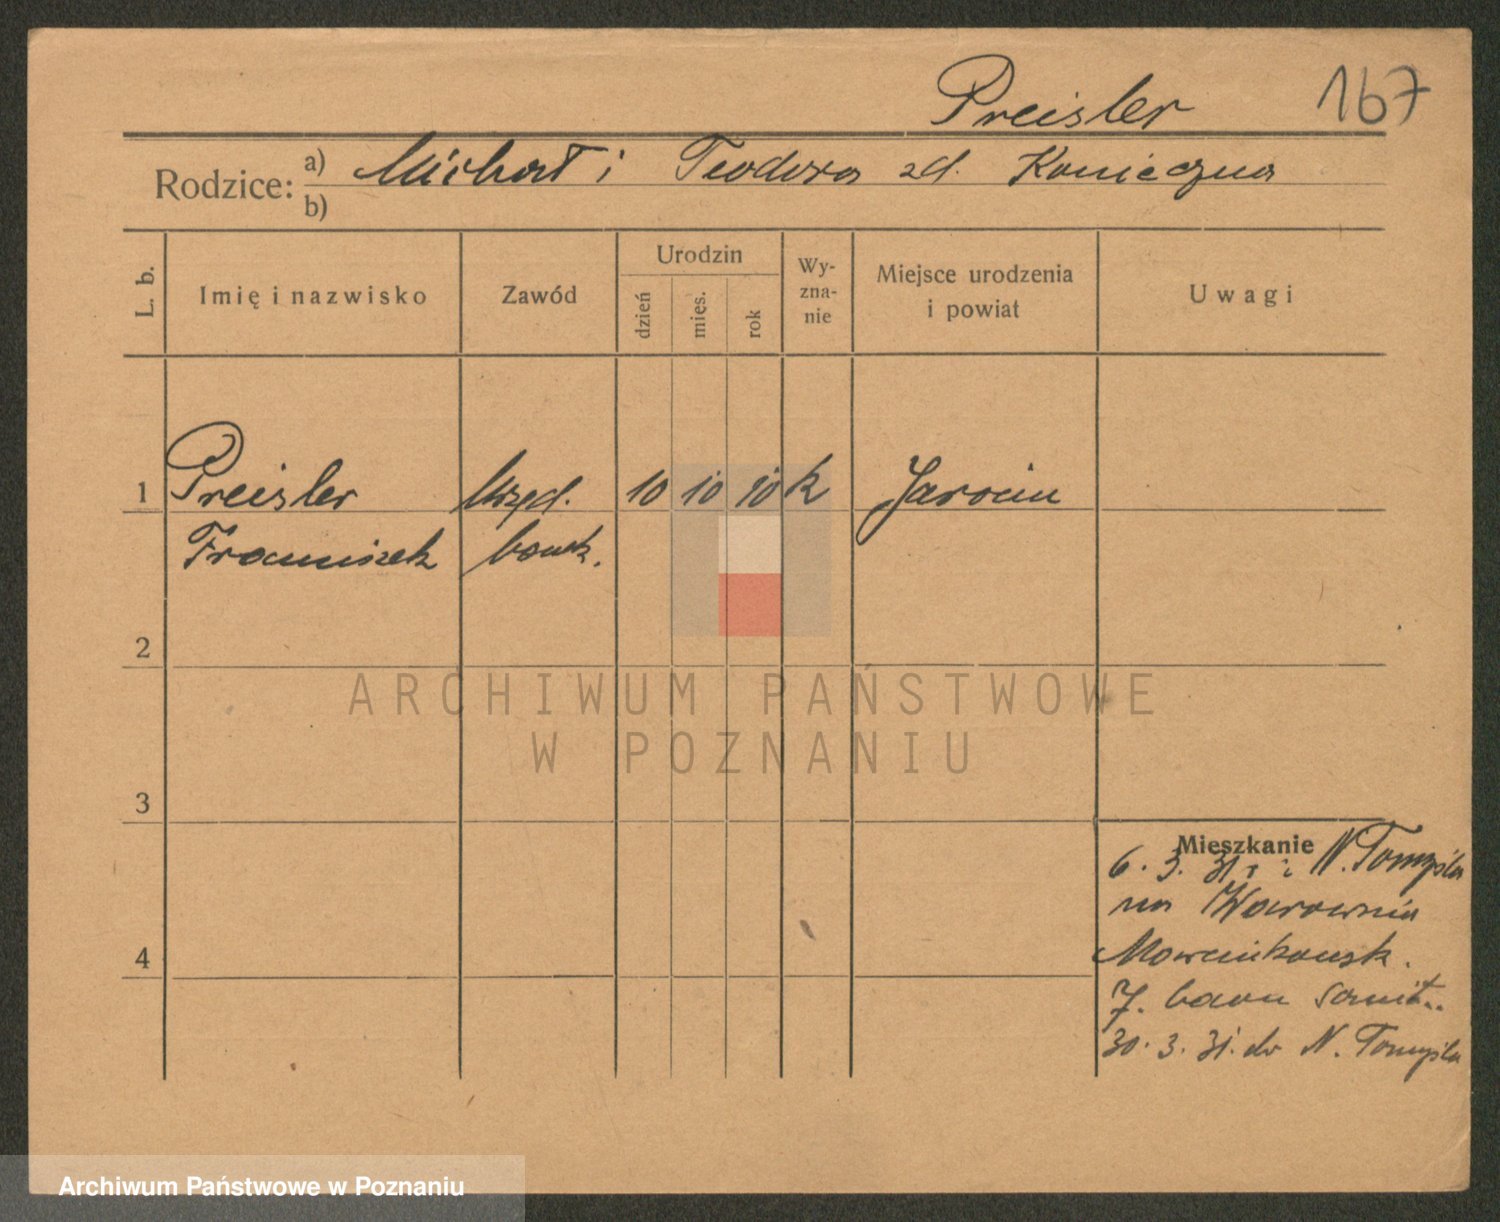 Preisler 167
Rodzice: a) Michał i Teodora zd. Konieczna
b)
L. b.
Imię i nazwisko
Zawód
Urodzin
dzień
mies.
rok
Wy-
zna-
nie
Miejsce urodzenia
i powiat
Uwagi
1 Preisler Urzęd. 10 10 10 k Jarocin
Franciszek bank.
2
ARCHIWUM PAŃSTWOWE
W POZNANIU
3
Mieszkanie
6. 3. 31 r z N. Tomyśla
na
Marcinkowsk.
7. baon sanit..
30. 3. 31. do N. Tomyśla
4
Archiwum Państwowe w Poznaniu